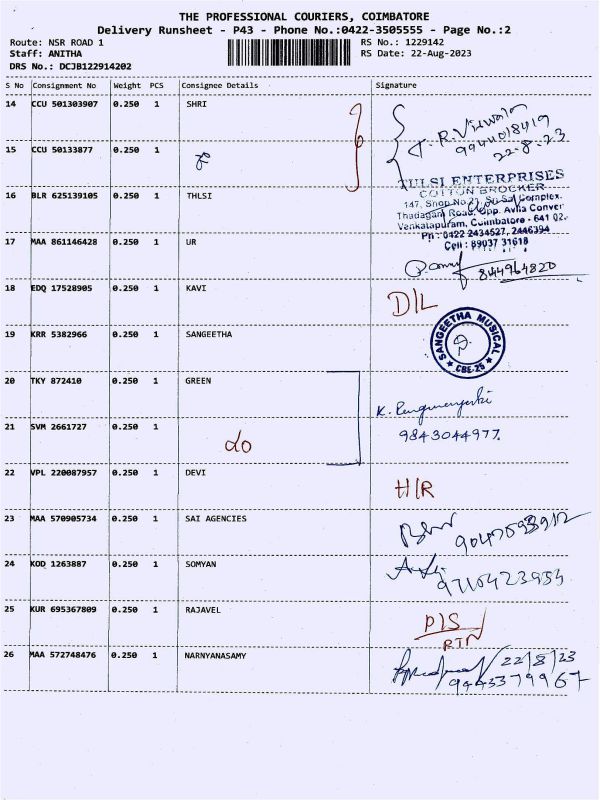 THE PROFESSIONAL COURIERS, COIMBATORE
Delivery Runsheet - P43 - Phone No.:0422-3505555 - Page No.:2
Route: NSR ROAD 1 RS No.: 1229142
Staff: ANITHA RS Date: 22-Aug-2023
DRS No.: DCJB122914202
S No Consignment No Weight PCS Consignee Details Signature
14 CCU 501303907 0.250 1 SHRI
9944018419
22-8-23
15 CCU 50133877 0.250 1
TULSI ENTERPRISES
COTTON BROCKER
16 BLR 625139105 0.250 1 THLSI
147, Shop No 21, Sri Sai Complex.
Thadagam Road, Opp. Avila Conver
Venkatapuram, Coimbatore - 641 02.
Ph : 0422 2434527, 2446394
Cell : 89037 31618
17 MAA 861146428 0.250 1 UR
844964820
18 EDQ 17528905 0.250 1 KAVI D/L
19 KRR 5382966 0.250 1 SANGEETHA
SANGEETHA MUSICAL
CBE-25
20 TKY 872410 0.250 1 GREEN
K.
21 SVM 2661727 0.250 1 do 9843044977.
22 VPL 220087957 0.250 1 DEVI H/R
23 MAA 570905734 0.250 1 SAI AGENCIES
24 KOD 1263887 0.250 1 SOMYAN
25 KUR 695367809 0.250 1 RAJAVEL P/S
RTN
26 MAA 572748476 0.250 1 NARNYANASAMY 22/8/23
9443379967